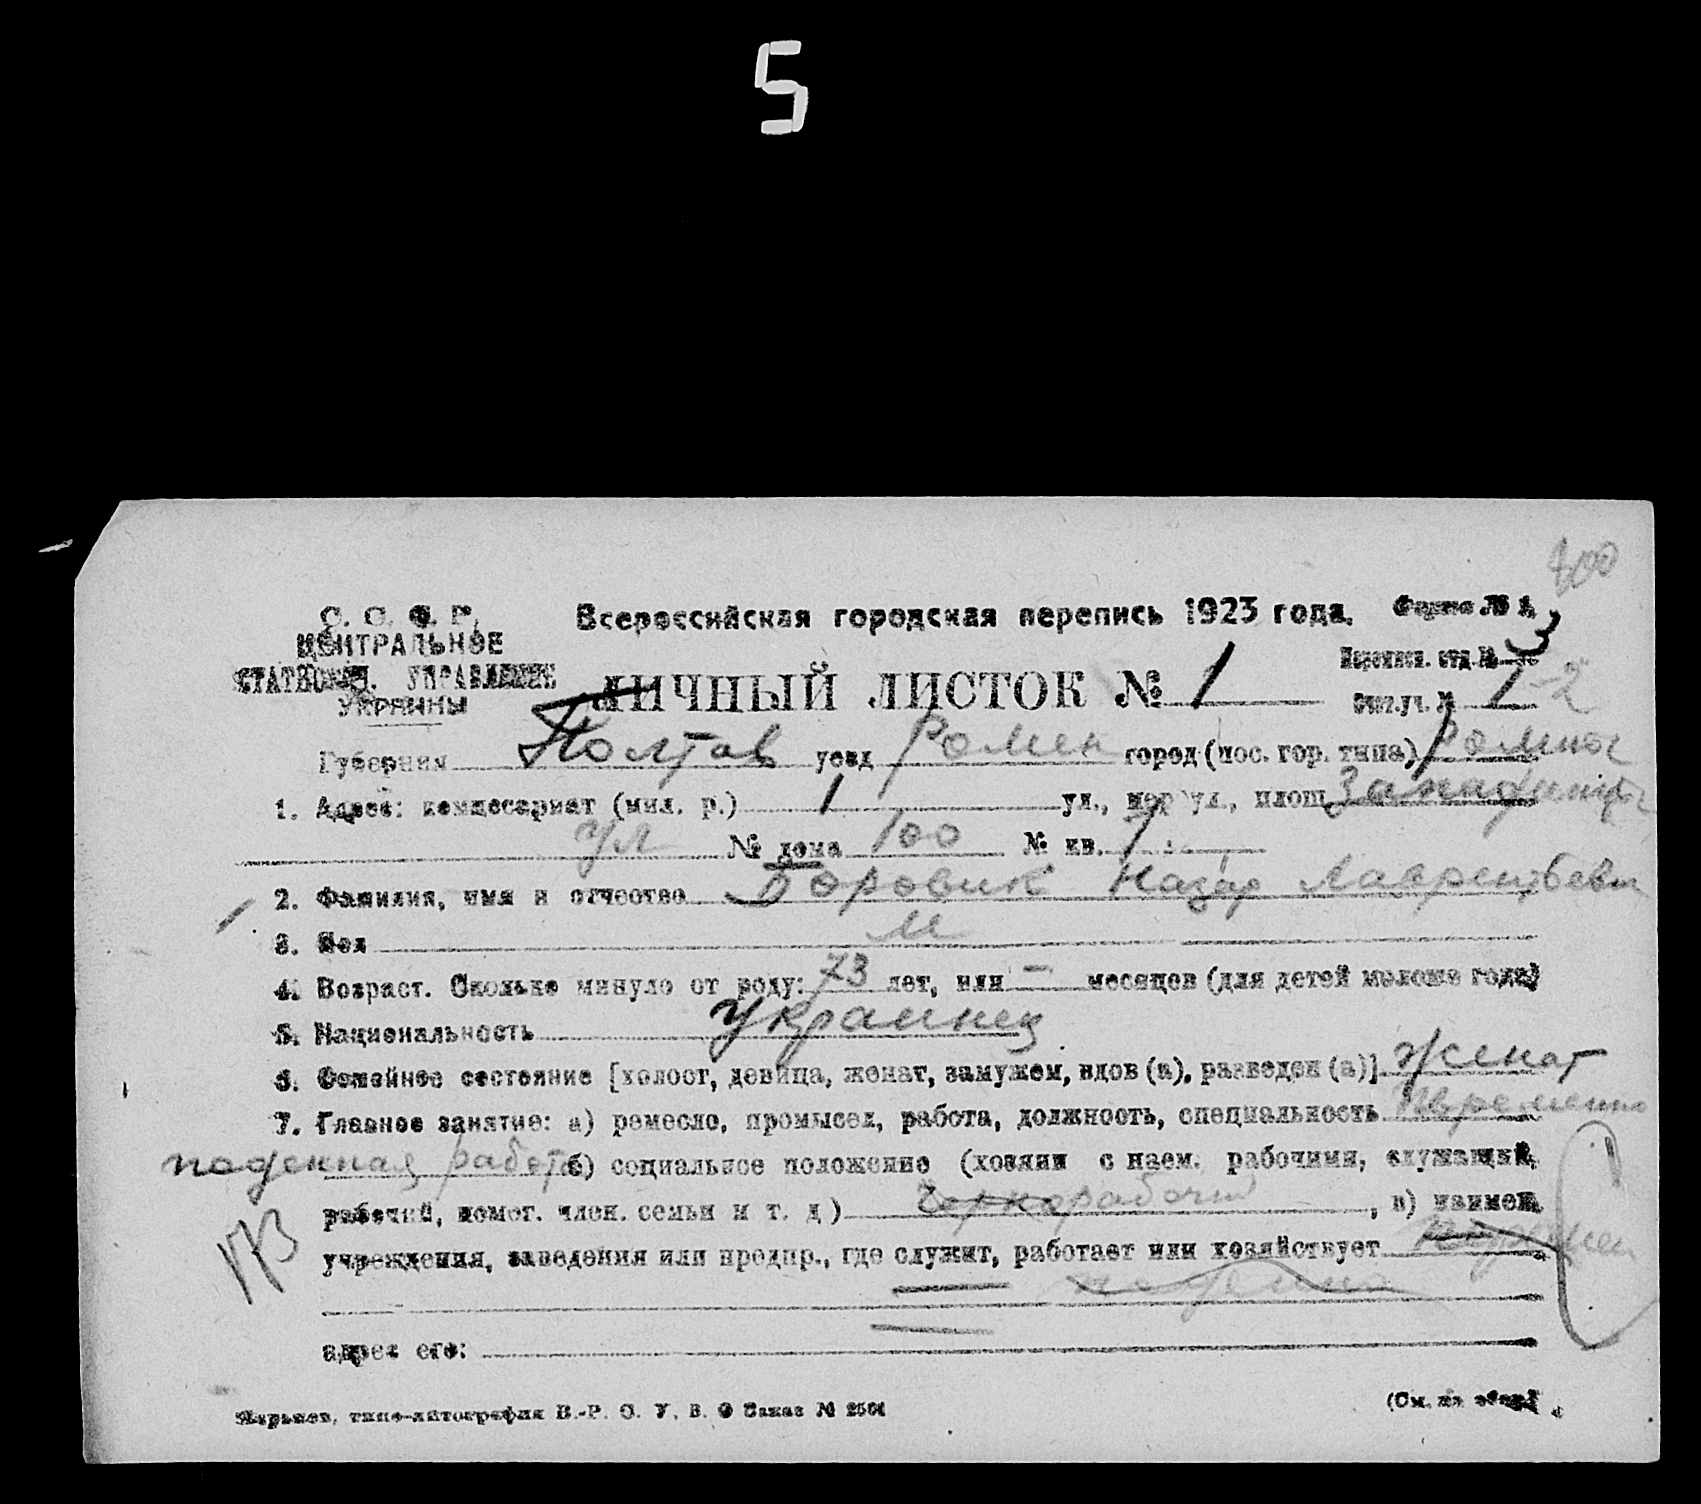 5
800
С. С. С. Р.
ЦЕНТРАЛЬНОЕ
СТАТИСТИЧ. УПРАВЛЕНИЕ
УКРАИНЫ
Всероссийская городская перепись 1923 года.
Форма № 1.
ЛИЧНЫЙ ЛИСТОК № 1
Переписн. отд. № 3
Счет. уч. № 1-2
Губерния Полтав уезд Ромен город (пос. гор. типа) Ромны
1. Адрес: комиссариат (мил. р.) 1 ул., пер ул., площ.
ул № дома 100 № кв. 1
2. Фамилия, имя и отчество Боровик Назар Лаврентьевич
3. Пол М
4. Возраст. Сколько минуло от роду: 73 лет, или — месяцев (для детей моложе года)
5. Национальность Украинец
6. Семейное состояние [холост, девица, женат, замужем, вдов (а), разведен (а)] женат
7. Главное занятие: а) ремесло, промысел, работа, должность, специальность
поденная работа б) социальное положение (хозяин с наем. рабочими, служащий,
рабочий, помог. член. семьи и т. д) Чернорабочий, в) наимен.
173
учреждения, заведения или предпр., где служит, работает или хозяйствует
поденно
адрес его:
Харьков, типо-литография В.-Р. О. У. В. О Заказ № 2501
(См. на обор.)